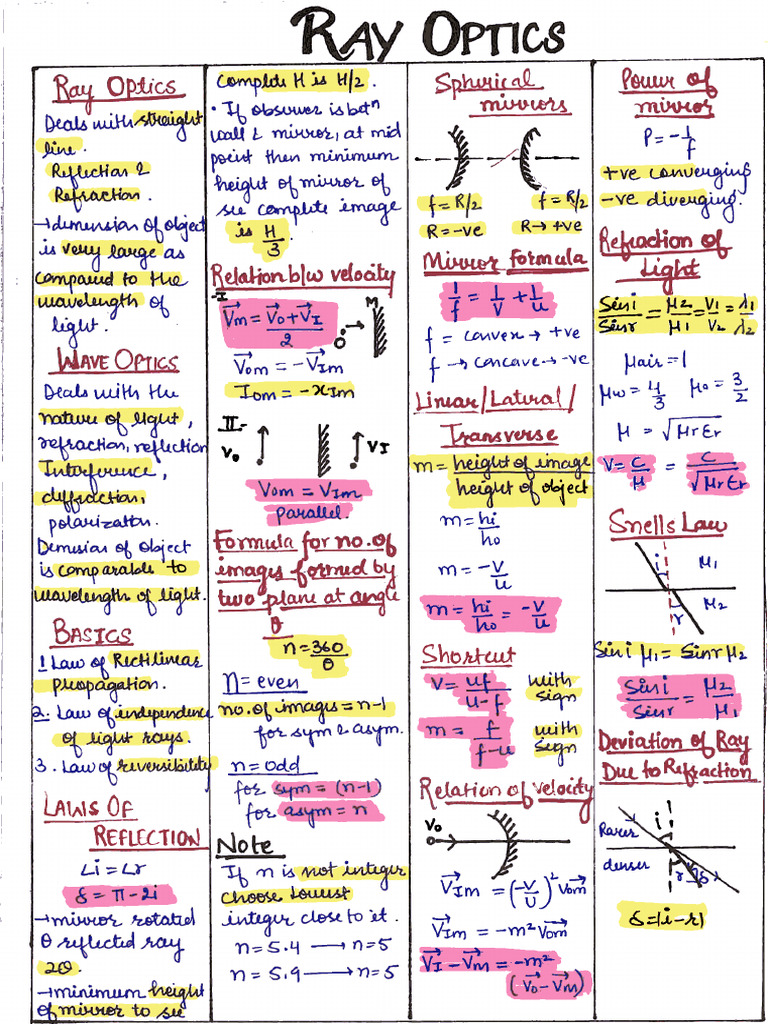 RAY OPTICS
Ray Optics
Deals with straight
line.
Reflection &
Refraction.
→dimension of object
is very large as
compared to the
wavelength of
light.
WAVE OPTICS
Deals with the
nature of light,
refraction, reflection
Interference,
diffraction,
polarization.
Demusian of object
is comparable to
wavelength of light.
BASICS
1 Law of Rectilinear
propagation.
2. Law of independence
of light rays.
3. Law of reversibility
LAWS OF
REFLECTION
∠i = ∠r
δ = π - 2i
→mirror rotated
θ reflected ray
2θ.
→minimum height
of mirror to see
complete H is H/2.
• If observer is betⁿ
wall & mirror, at mid
point then minimum
height of mirror of
see complete image
is H/3.
Relation b/w velocity
-I
V⃗m = (V⃗o + V⃗I)/2
M
O
V⃗om = -V⃗Im
Iom = -xIm
II-
Vo
VI
Vom = VIm
parallel.
Formula for no. of
images formed by
two plane at angle
θ
n = 360/θ
n = even
no. of images = n-1
for sym & asym.
n = odd
for sym = (n-1)
for asym = n
Note
If n is not integer
choose lowest
integer close to it.
n = 5.4 → n = 5
n = 5.9 → n = 5
Spherical
mirrors
f = R/2
f = R/2
R = -ve
R → +ve
Mirror formula
1/f = 1/V + 1/u
f = convex → +ve
f → concave → -ve
Linear/Lateral/
Transverse
m = height of image/height of object
m = hi/ho
m = -V/u
m = hi/ho = -V/u
Shortcut
V = uf/u-f
with
sign
m = f/f-u
with
sign
Relation of velocity
Vo
V⃗Im = (-V/U)² V⃗om
V⃗Im = -m² V⃗om
V⃗I - V⃗m = -m²
(V⃗o - V⃗m)
Power of
mirror
P = -1/f
+ve converging
-ve diverging.
Refraction of
Light
Sini/Sinr = μ2/μ1 = V1/V2 = λ1/λ2
μair = 1
μw = 4/3
μo = 3/2
μ = √μrεr
V = C/μ = C/√μrεr
Snells Law
i
μ1
μ2
r
Sini μ1 = Sinr μ2
Sini/Sinr = μ2/μ1
Deviation of Ray
Due to Refraction
i
Rarer
denser
r
δ
δ = |i-r|